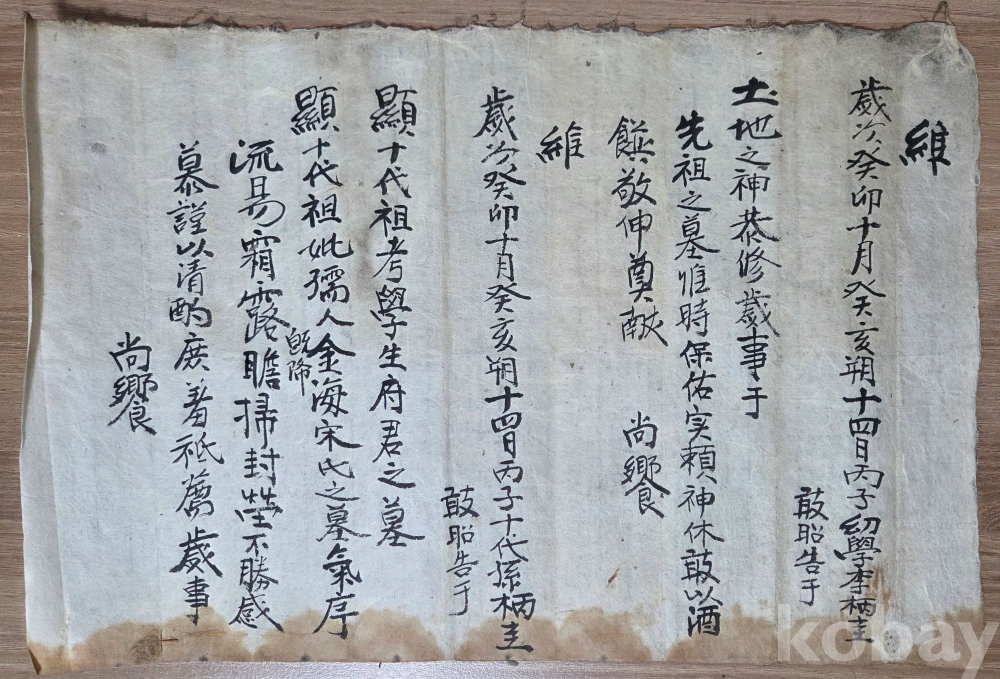 維
歲次癸卯十月癸亥朔十四日丙子幼學李柄圭
敢昭告于
土地之神恭修歲事于
先祖之墓惟時保佑実賴神休敢以酒
饌敬伸奠獻 尚饗
維
歲次癸卯十月癸亥朔十四日丙子十代孫柄圭
敢昭告于
顯十代祖考學生府君之墓
顯十代祖妣孺人金海宋氏之墓氣序
流易霜露既降瞻掃封塋不勝感
慕謹以清酌庶羞祗薦歲事
尚饗
kobay